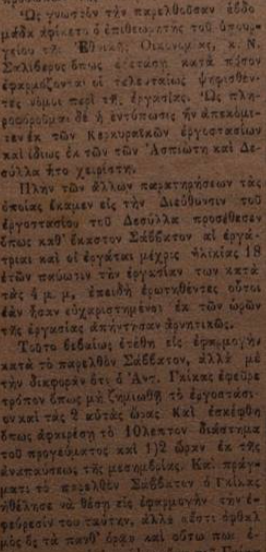 Ὡς γνωστὸν τὴν παρελθοῦσαν ἑβδο-
μάδα ἀφίκετο ὁ ἐπιθεωρητὴς τοῦ ὑπουρ-
γείου τῆς Ἐθνικῆς Οἰκονομίας, κ. Ν.
Σαλίβερος ὅπως ἐξετάσῃ κατὰ πόσον
ἐφαρμόζονται οἱ τελευταίως ψηφισθέν-
τες νόμοι περὶ τῆς ἐργασίας. Ὡς πλη-
ροφορούμαι δὲ ἡ ἐντύπωσις ἣν ἀπεκόμι-
σεν ἐκ τῶν Κερκυραϊκῶν ἐργοστασίων
καὶ ἰδίως ἐκ τῶν τῶν Ἀσπιώτη καὶ Δε-
σύλλα ἦτο χειρίστη.
Πλὴν τῶν ἄλλων παρατηρήσεων τὰς
ὁποίας ἔκαμεν εἰς τὴν Διεύθυνσιν τοῦ
ἐργοστασίου τοῦ Δεσύλλα προσέθεσεν
ὅπως καθ' ἕκαστον Σάββατον αἱ ἐργά-
τριαι καὶ οἱ ἐργάται μέχρις ἡλικίας 18
ἐτῶν παύωσιν τὴν ἐργασίαν των κατὰ
τὰς 4 μ. μ, ἐπειδὴ ἐρωτηθέντες οὗτοι
ἐὰν ἦσαν εὐχαριστημένοι ἐκ τῶν ὡρῶν
τῆς ἐργασίας ἀπήντησαν ἀρνητικῶς.
Τοῦτο βεβαίως ἐτέθη εἰς ἐφαρμογὴν
κατὰ τὸ παρελθὸν Σάββατον, ἀλλὰ μὲ
τὴν διαφορὰν ὅτι ὁ Ἀντ. Γκίκας ἐφεῦρε
τρόπον ὅπως μὴ ζημιωθῇ τὸ ἐργοστάσι-
ον καὶ τὰς 2 αὐτὰς ὥρας. Καὶ ἐσκέφθη
ὅπως ἀφαιρέσῃ τὸ 10λεπτον διάστημα
τοῦ προγεύματος καὶ 1)2 ὥραν ἐκ τῆς
ἀναπαύσεως τῆς μεσημβρίας. Καὶ πράγ-
ματι τὸ παρελθὸν Σάββατον ὁ Γκίκας
ἠθέλησε νὰ θέσῃ εἰς ἐφαρμογὴν τὴν ἐ-
φεύρεσίν του ταύτην, ἀλλὰ «ἔστι ὀφθαλ
μὸς ὃς τὰ πανθ' ὁρᾷ» καὶ οὕτω